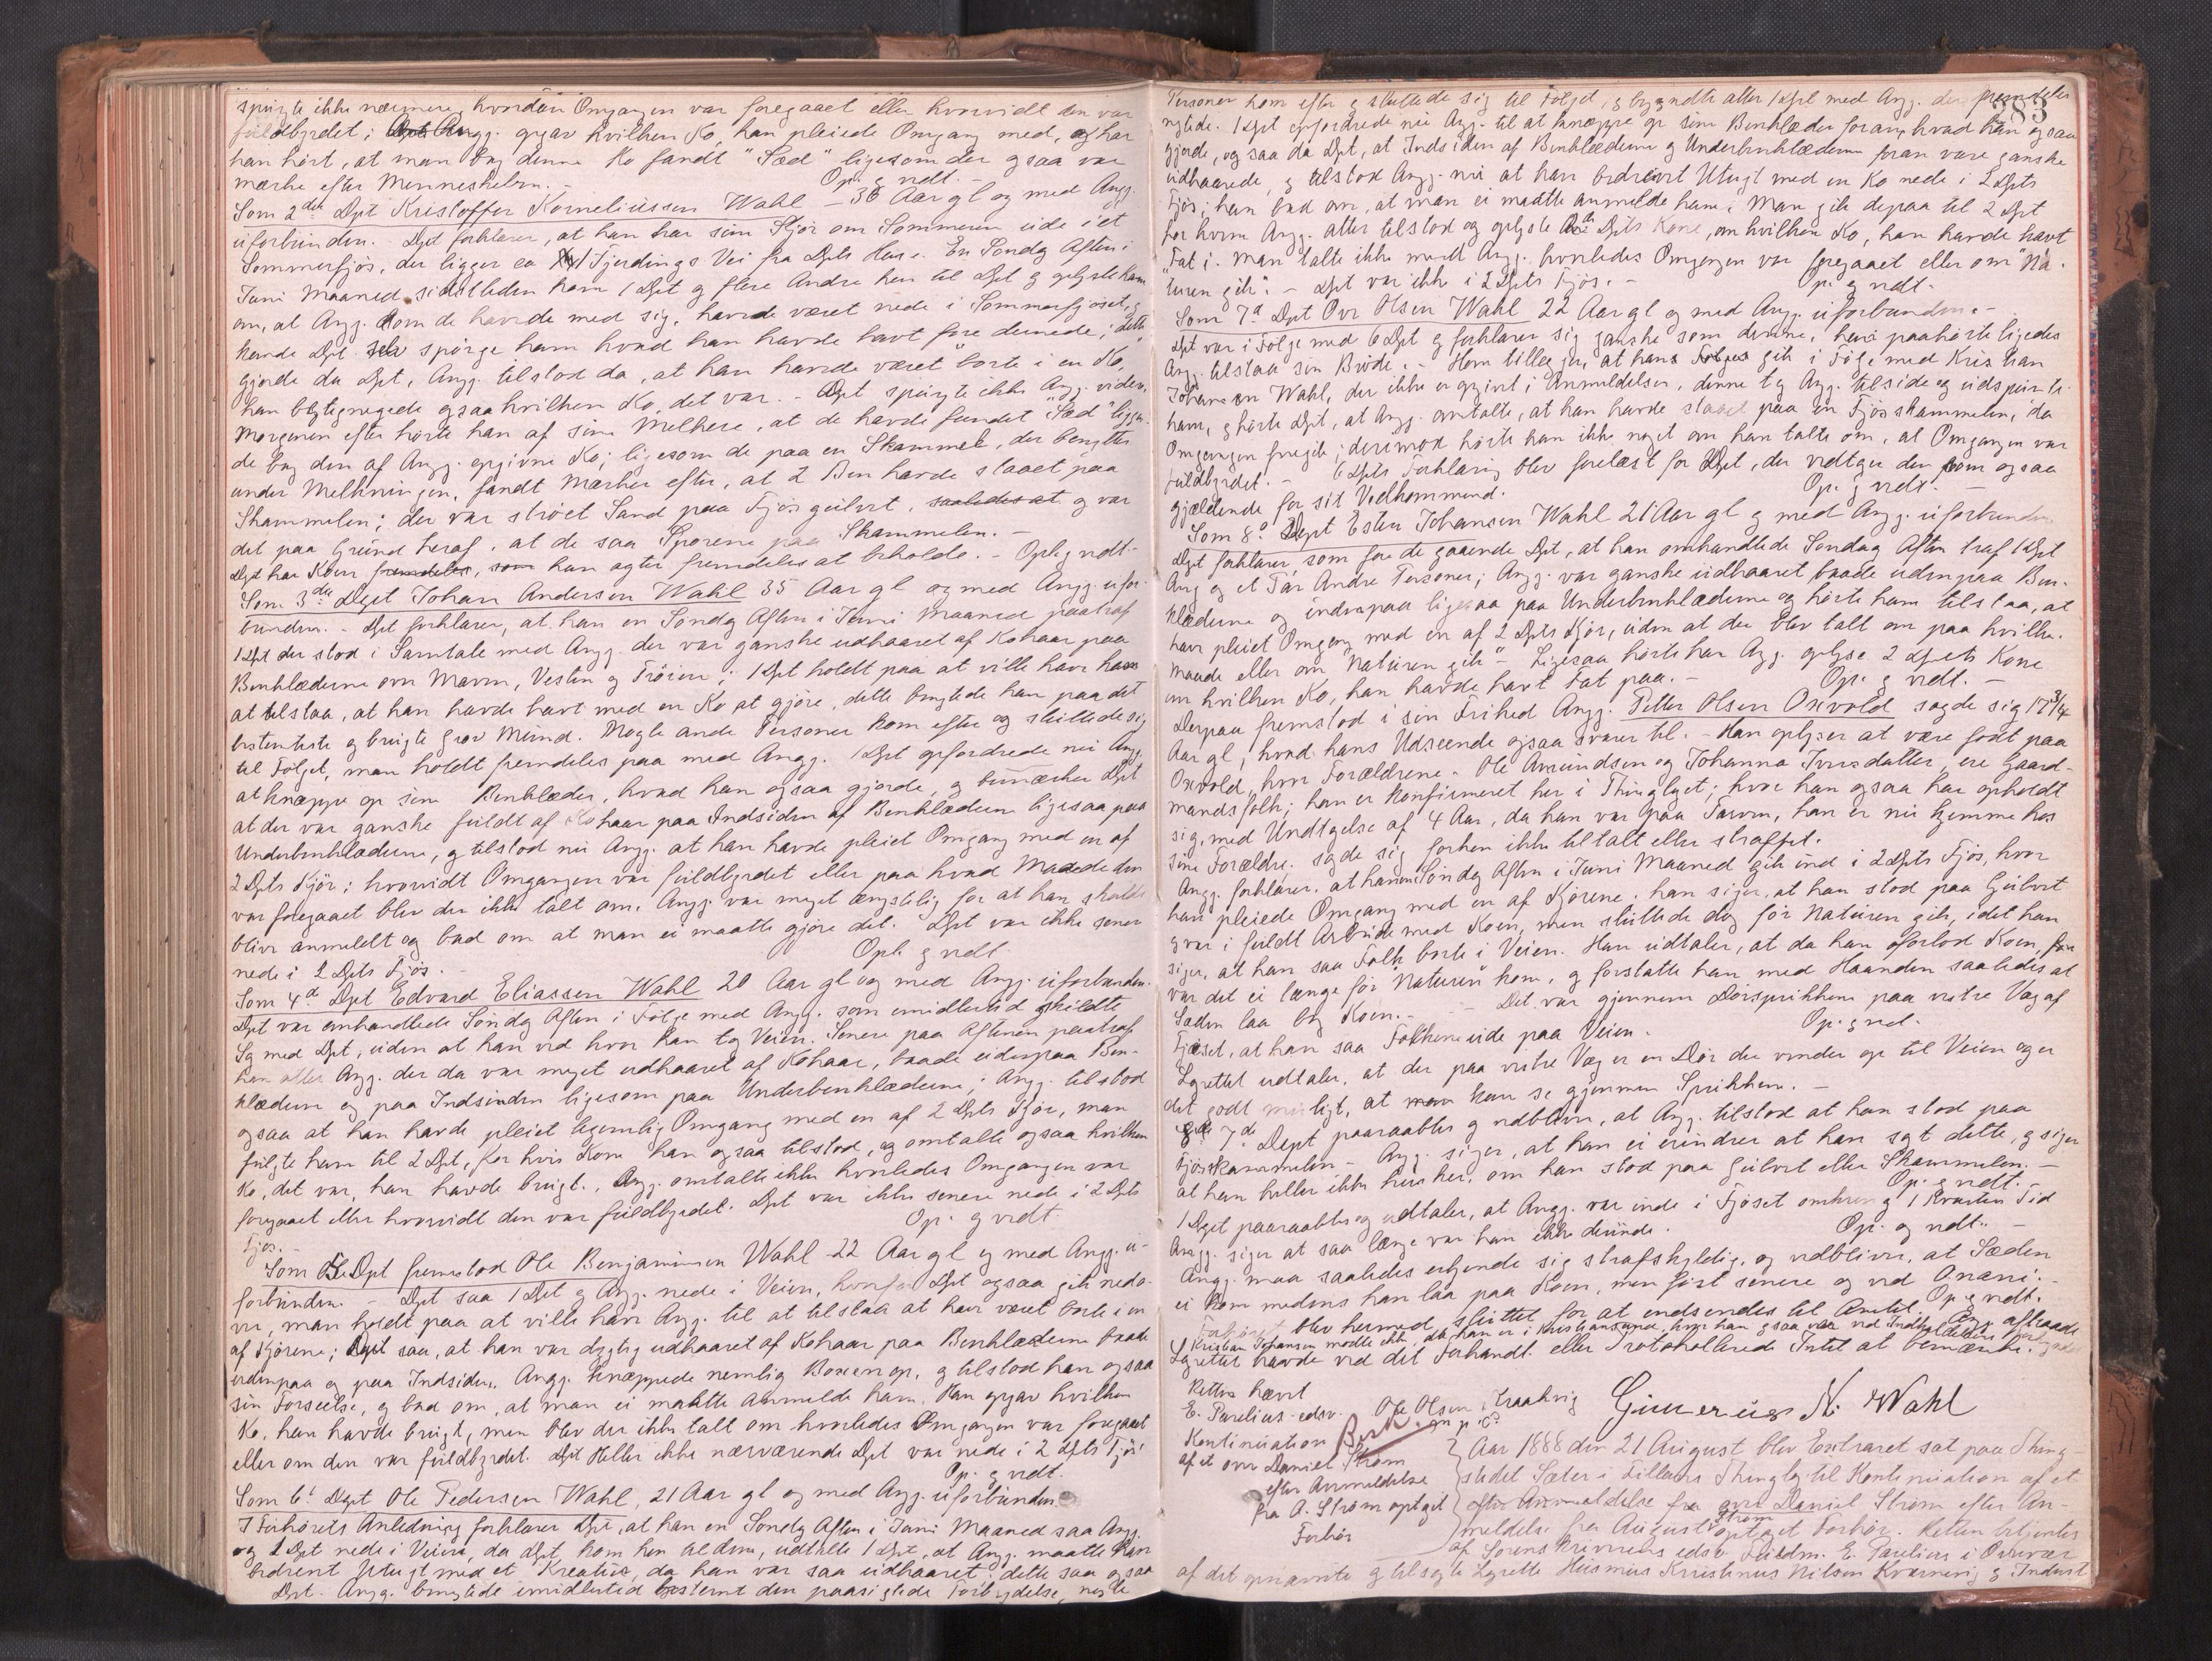 spurgte ikke nærmere, hvordan Omgangen var foregaaet eller hvorvidt den var
fuldbyrdet; Angg. opgav hvilken Ko, han pleiede Omgang med, og har
han hørt, at man bag denne Ko fandt "Sæd" ligesom der ogsaa var
mærke efter Menneskeben. - Op. g vedt. -
Som 2det Dpt Kristoffer Korneliussen Wahl - 36 Aar gl og med Angg.
uforbunden. - Dpt forklarer, at han har sine Kjør om Sommeren ude i et
Sommerfjøs, der ligger ca 1 Fjerdings Vei fra Dpts Huse. En Søndag Aften i
Juni Maaned sidstleden kom 1 Dpt g flere Andre hen til Dpt g oplyste ham
om, at Angg. som de havde med sig, havde været nede i Sommerfjøset, g
kunde Dpt selv spørge ham hvad han havde havt fore dernede; dette
gjorde da Dpt, Angg. tilstod da, at han havde været "borte i en Ko,
han betegnede ogsaa hvilken Ko, det var. - Dpt spurgte ikke Angg. videre.
Morgenen efter hørte han af sine Melkere, at de havde fundet "Sæd" liggen-
de bag den af Angg. opgivne Ko; ligesom de paa en Skammel, der benyttes
under Melkningen, fandt Mærker efter, at 2 Ben havde staaet paa
Skammelen; der var strøet Sand paa Fjøsgulvet, saaledes at og var
det paa Grund heraf, at de saa Sporene paa Skammelen. -
Dpt har Koen fremdeles, som han agter fremdeles at beholde. - Opl. g vedt. -
Som 3die Dpt Johan Andersen Wahl 35 Aar gl og med Angg. ufor-
bunden. - Dpt forklarer, at han en Søndag Aften i Juni Maaned paatraf
1 Dpt der stod i Samtale med Angg. der var ganske udhaaret af Kohaar paa
Benklæderne over Maven, Vesten og Trøien; 1 Dpt holdt paa at ville have ham
at tilstaa, at han havde havt med en Ko at gjøre, dette benegtede han paa det
bestemteste og brugte grov Mund. Nogle andre Personer kom efter og sluttede sig
til Følget, man holdt fremdeles paa med Angg. 1 Dpt opfordrede nu Angg.
at knæppe op sine Benklæder, hvad han ogsaa gjorde, og bemærker Dpt
at der var ganske fuldt af Kohaar paa Indsiden af Benklæderne ligesaa paa
Underbenklæderne, g tilstod nu Angg. at han havde pleiet Omgang med en af
2 Dpts Kjør; hvorvidt Omgangen var fuldbyrdet eller paa hvad Maade den
var foregaaet blev der ikke talt om. Angg. var meget ængstelig for at han skulde
blive anmeldt og bad om at man ei maatte gjøre det. Dpt var ikke senere
nede i 2 Dpts Fjøs. - Opl. g vedt.
Som 4de Dpt Edvard Eliassen Wahl 20 Aar gl og med Angg. uforbunden.
Dpt var omhandlede Søndag Aften i Følge med Angg. som imidlertid skildte
sig med Dpt, uden at han ved hvor han tog Veien. Senere paa Aftenen paatraf
han atter Angg. der da var meget udhaaret af Kohaar, baade udenpaa Ben-
klæderne og paa Indsiden ligesom paa Underbenklæderne; Angg. tilstod
ogsaa at han havde pleiet legemlig Omgang med en af 2 Dpts Kjør, man
fulgte ham til 2 Dpt, for hvis Kone han ogsaa tilstod, og omtalte ogsaa hvilken
Ko, det var, han havde brugt., Angg. omtalte ikke hvorledes Omgangen var
foregaaet eller hvorvidt den var fuldbyrdet. Dpt var ikke senere nede i 2 Dpts
Fjøs. - Op. g vedt.
Som 5te Dpt fremstod Ole Benjaminsen Wahl 22 Aar gl og med Angg. u-
forbunden. - Dpt saa 1 Dpt g Angg. nede i Veien, hvorfor Dpt ogsaa gik nedo-
ver, man holdt paa at ville have Angg. til at tilstaa at have været borte i en
af Kjørene; Dpt saa, at han var dygtig udhaaret af Kohaar paa Benklæderne baade
udenpaa og paa Indsiden. Angg. knæppede nemlig Boxen op, g tilstod han ogsaa
sin Forseelse, g bad om, at man ei maatte anmelde ham. Han opgav hvilken
Ko, han havde brugt, men blev der ikke talt om hvorledes Omgangen var foregaaet
eller om den var fuldbyrdet. Heller ikke nærværende Dpt var nede i 2 Dpts Fjøs.
Op. g vedt.
Som 6te Dpt Ole Pedersen Wahl, 21 Aar gl og med Angg. uforbunden.
I Forhørets Anledning forklarer Dpt, at han en Søndag Aften i Juni Maaned saa Angg.
og 1 Dpt nede i Veien, da Dpt kom hen til dem, udtalte 1 Dpt, at Angg. maatte have
bedrevet Utugt med et Kreatur, da han var saa udhaaret; dette saa ogsaa
Dpt. Angg. benegtede imidlertid bestemt den paasigtede Forbrydelse, nogle
83
Personer kom efter g sluttede sig til Følget, g begyndte atter 1 Dpt med Angg. der fremdeles
negtede. 1 Dpt opfordrede nu Angg. til at knæppe op sine Benklæder foran, hvad han ogsaa
gjorde, og saa da Dpt, at Indsiden af Benklæderne g Underbenklæderne foran vare ganske
udhaarede, g tilstod Angg. nu at han bedrevet Utugt med en Ko nede i 2 Dpts
Fjøs; han bad om, at man ei maatte anmelde ham; Man gik depaa til 2 Dpt
for hvem Angg. atter tilstod og oplyste Dpts Kone, om hvilken Ko, han havde havt
"fat i". Man talte ikke med Angg. hvorledes Omgangen var foregaaet eller om "Na-
turen gik". - Dpt var ikke i 2 Dpts Fjøs. - Op. g vedt.
Som 7de Dpt Ove Olsen Wahl 22 Aar gl og med Angg. uforbunden. -
Dpt var i Følge med 6 Dpt g forklarer sig ganske som denne; han paahørte ligedes
Angg. tilstaa sin Brøde. - Han tillægger, at hans Følges gik i Følge med Kristian
Johansen Wahl, der ikke er opgivet i Anmeldelsen, denne tog Angg. tilside og udspurgte
ham, g hørte Dpt, at Angg. omtalte, at han havde staaet paa en Fjøsskammelen, da
Omgangen foregik; derimod hørte han ikke noget om han talte om, at Omgangen var
fuldbyrdet. - 6 Dpts Forklaring blev forelæst for Dpt, der vedtager den som ogsaa
gjældende for sit Vedkommende. Op. g vedt. -
Som 8de Dpt Esten Johansen Wahl 21 Aar gl g med Angg. uforbunden
Dpt forklarer, som foregaaende Dpt, at han omhandlede Søndag Aften traf 1 Dpt
Angg og et Par Andre Personer; Angg. var ganske udhaaret baade udenpaa Ben-
klæderne og indenpaa ligesaa paa Underbenklæderne og hørte ham tilstaa, at
have pleiet Omgang med en af 2 Dpts Kjør, uden at der blev talt om paa hvilken
Maade eller om "Naturen gik" - Ligesaa hørte han Angg. oplyse 2 Dpts Kone
om hvilken Ko, han havde havt fat paa. - Op. g vedt. -
Derpaa fremstod i sin Frihed Angg. Petter Olsen Oxvold sagde sig 17 3/4
Aar gl, hvad hans Udseende ogsaa svarer til. - Han oplyser at være født paa
Oxvold, hvor Forældrene - Ole Amundsen og Johanna Iversdatter, ere Gaard-
mandsfolk; han er konfirmeret her i Thinglaget; hvor han ogsaa har opholdt
sig, med Undtagelse af 4 Aar, da han var paa Farven, han er nu hjemme hos
sine Forældre; sagde sig forhen ikke tiltalt eller straffet.
Angg. forklarer, at han en Søndag Aften i Juni Maaned gik ind i 2 Dpts Fjøs, hvor
han pleiede Omgang med en af Kjørene; han siger, at han stod paa Gulvet
g var i fuldt Arbeide med Koen, men sluttede dog før Naturen gik, idet han
siger, at han saa Folk borte i Veien. Han udtaler, at da han forlod Koen,
var det ei længe før "Naturen" kom, g forstatte han med Haanden saaledes at
Sæden laa bag Koen. - - Det var gjennem Dørsprækkene paa vestre Væg af
Fjøset, at han saa Folkene ude paa Veien. - Op. g ved.
Lgrettet udtaler, at der paa vestre Væg er en Dør der vender op til Veien og er
det godt muligt, at man kan se gjennem Sprikkene. -
7de Dept paaraabtes g vedbliver, at Angg. tilstod at han stod paa
Fjøskammelen - Angg. siger, at han ei erindrer at han sagt dette, g siger
at han heller ikke husker, om han stod paa Gulvet eller Skammelen. -
Op. g vedt.
1 Dpt paaraabtes og udtaler, at Angg. var inde i Fjøset omkring 1 Kvarters Tid
Angg. siger at saa længe var han ikke derinde. - Op. og vedt. -
Angg. maa saaledes erkjende sig strafskyldig, og vedbliver, at Sæden
ei kom medens han laa paa Koen, men først senere og ved Onani. -
Op. g vedt.
Forhøret blev hermed sluttet for at indsendes til Amtet. Angg. aftraadt
Kristian Johansen mødte ikke, da han er i Kristiansund, hvor han ogsaa var ved Indkaldelsens
Lgrettet havde ved det Forhandl. eller Protokollerede Intet at bemærke.
Retten hævet
E. Parelius edsv. Ole Olsen Kraakvig Gunerius N. Wahl
m. p. P.
Kontinuation Besk.
af et over Daniel Strøm
efter Anmeldelse
fra A. Strøm optaget
Forhør
Aar 1888 den 21 August blev Extraret sat paa Thing-
stedet Sæter i Fillans Thinglag til Kontinuation af et
efter Anmeldelse fra over Daniel Strøm efter An-
meldelse fra August Strøm optaget Forhør. Retten betjentes
af Sorenskriverens edsv. Fuldm. E. Parelius i Overvær
af det opnævnte g tilsagte Lgrette Husmus Kristinus Nilsen Kværnvig g Inderst